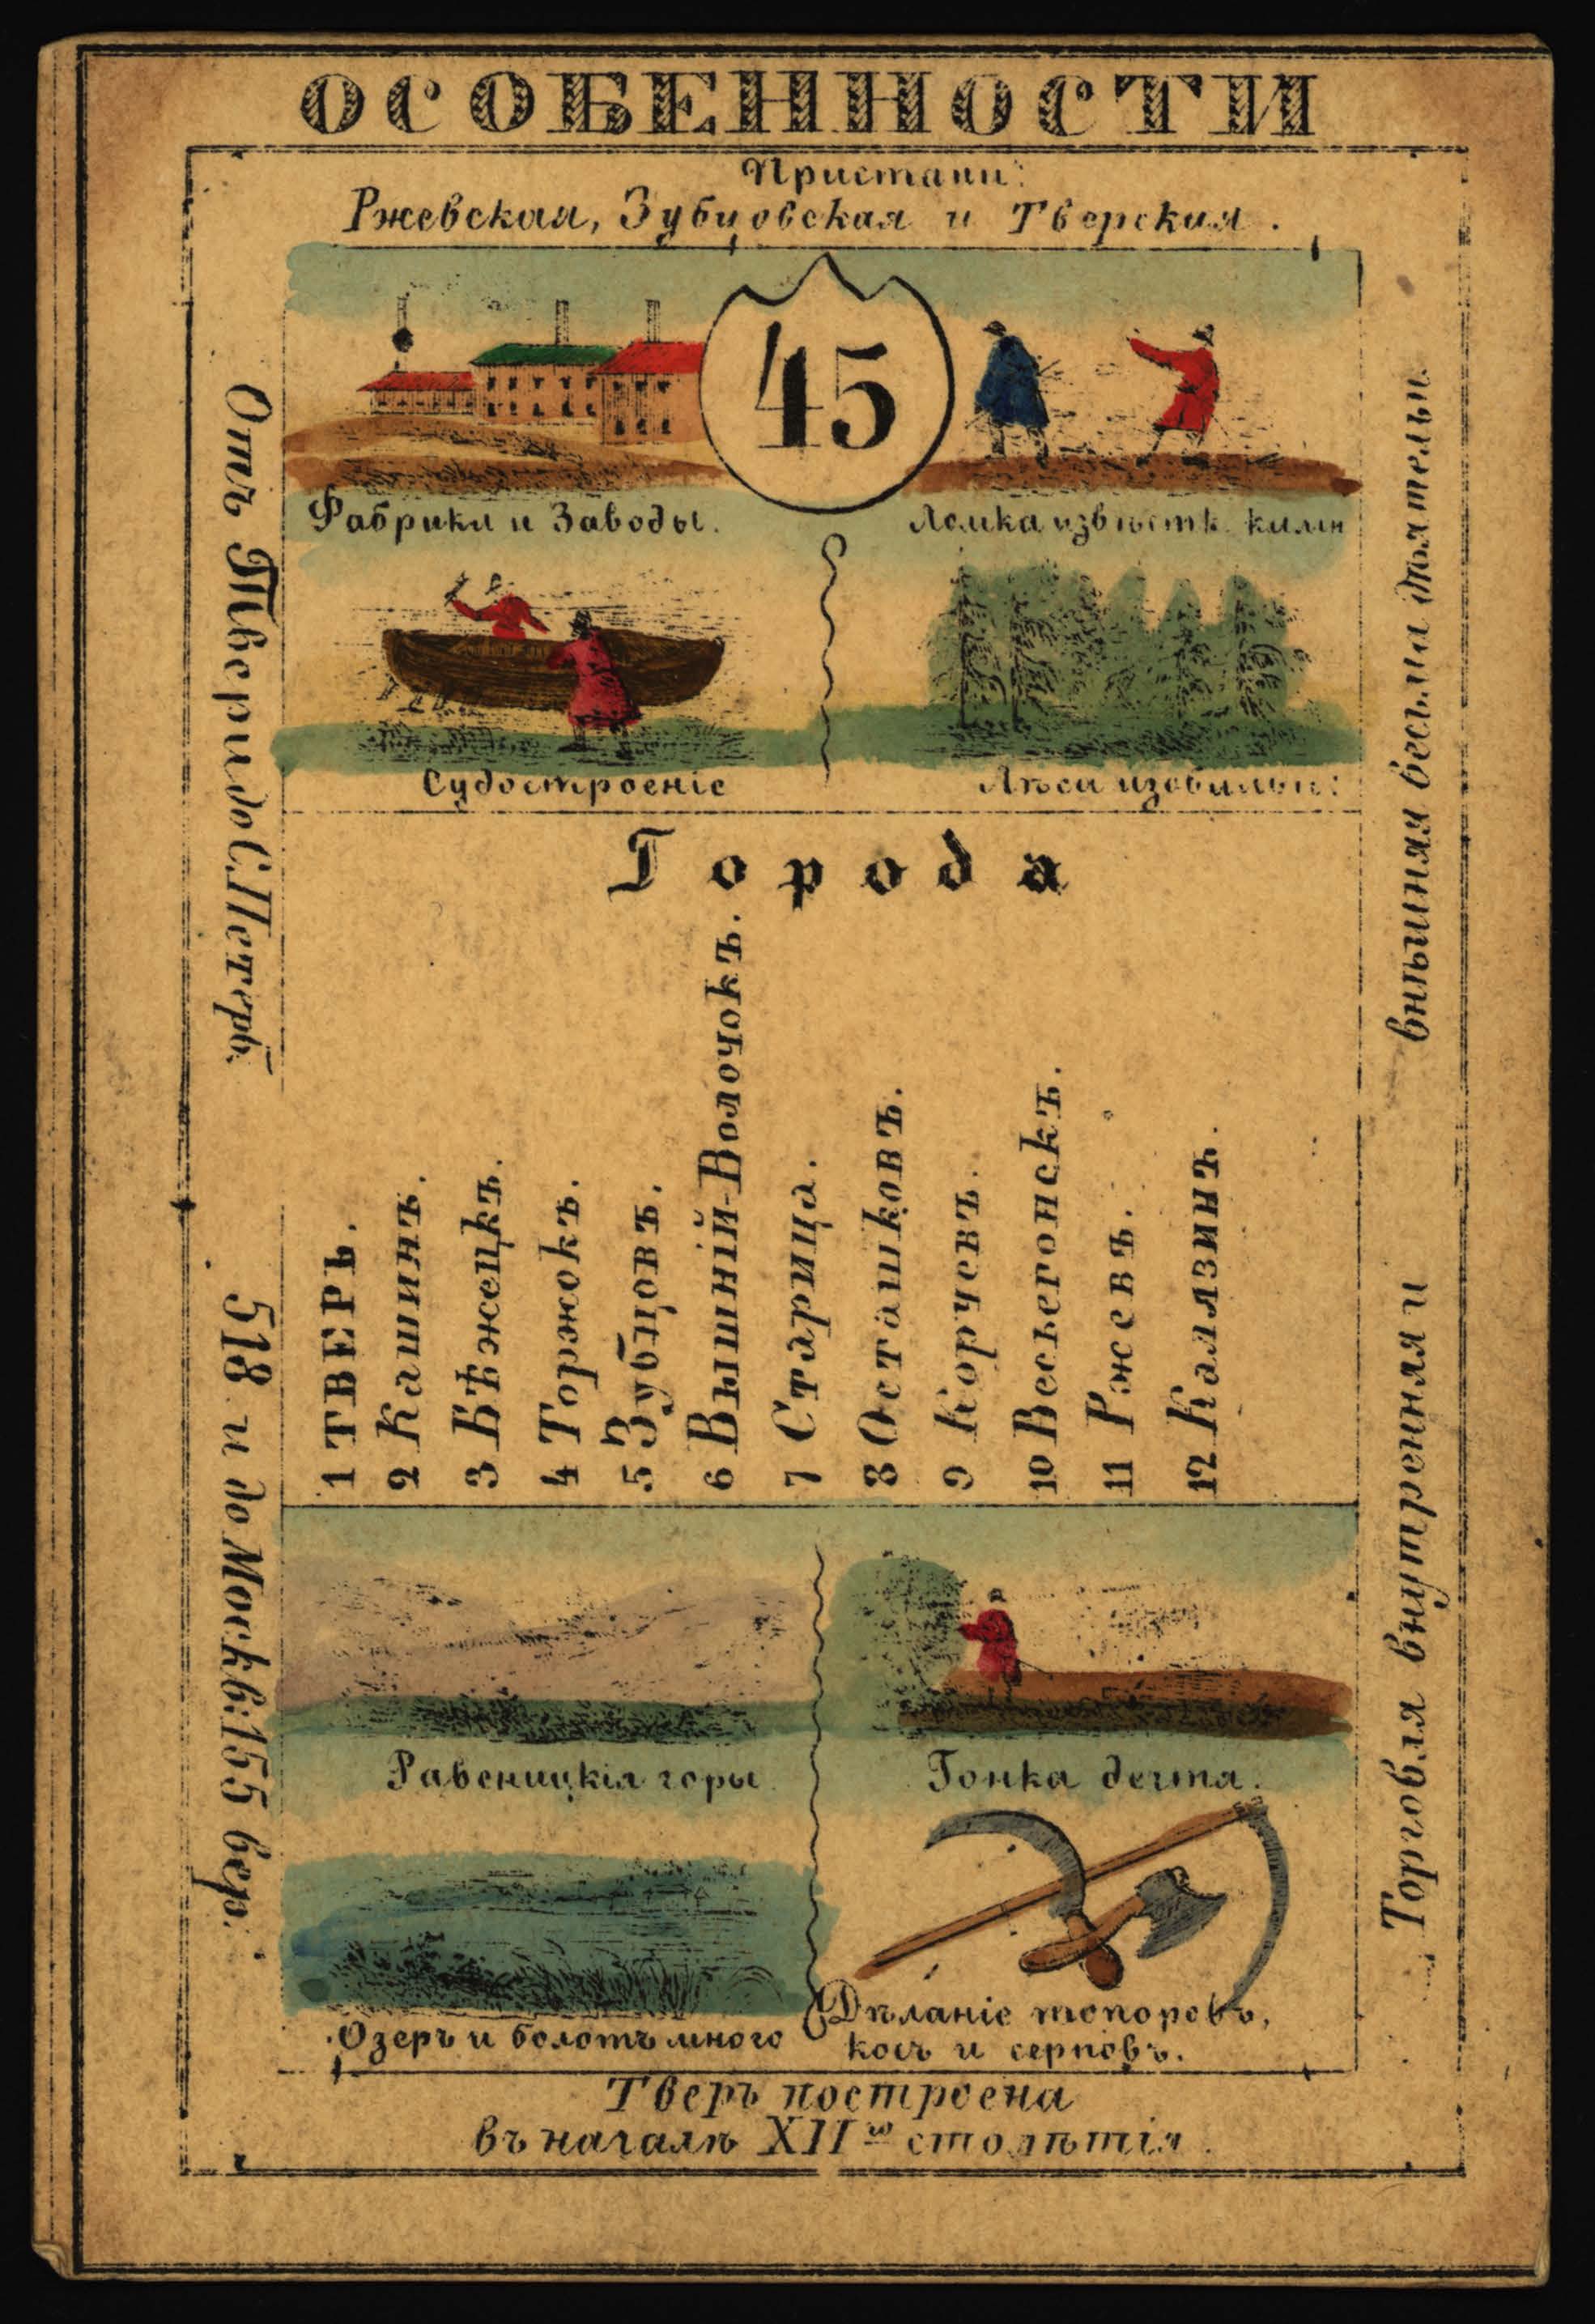 ОСОБЕННОСТИ
Пристани:
Ржевская, Зубцовская и Тверская.
45
Фабрики и Заводы.
Ломка извѣстк. камн
Судостроенiе
Лѣса изобильн:
Отъ Твери до С.Петерб:
518 и до Москв:155 вер.
Города
1 ТВЕРЬ.
2 Кашинъ.
3 Бѣжецкъ.
4 Торжокъ.
5 Зубцовъ.
6 Вышнiй-Волочокъ.
7 Старица.
8 Осташковъ.
9 Корчевъ.
10 Весьегонскъ.
11 Ржевъ.
12 Калязинъ.
Торговля внутренняя и
внѣшняя весьма дѣятельн.
Ревеницкiя горы
Гонка дегтя.
Озеръ и болотъ много
Дѣланiе топоровъ,
косъ и серповъ.
Тверь построена
въ началѣ XII го столѣтiя.